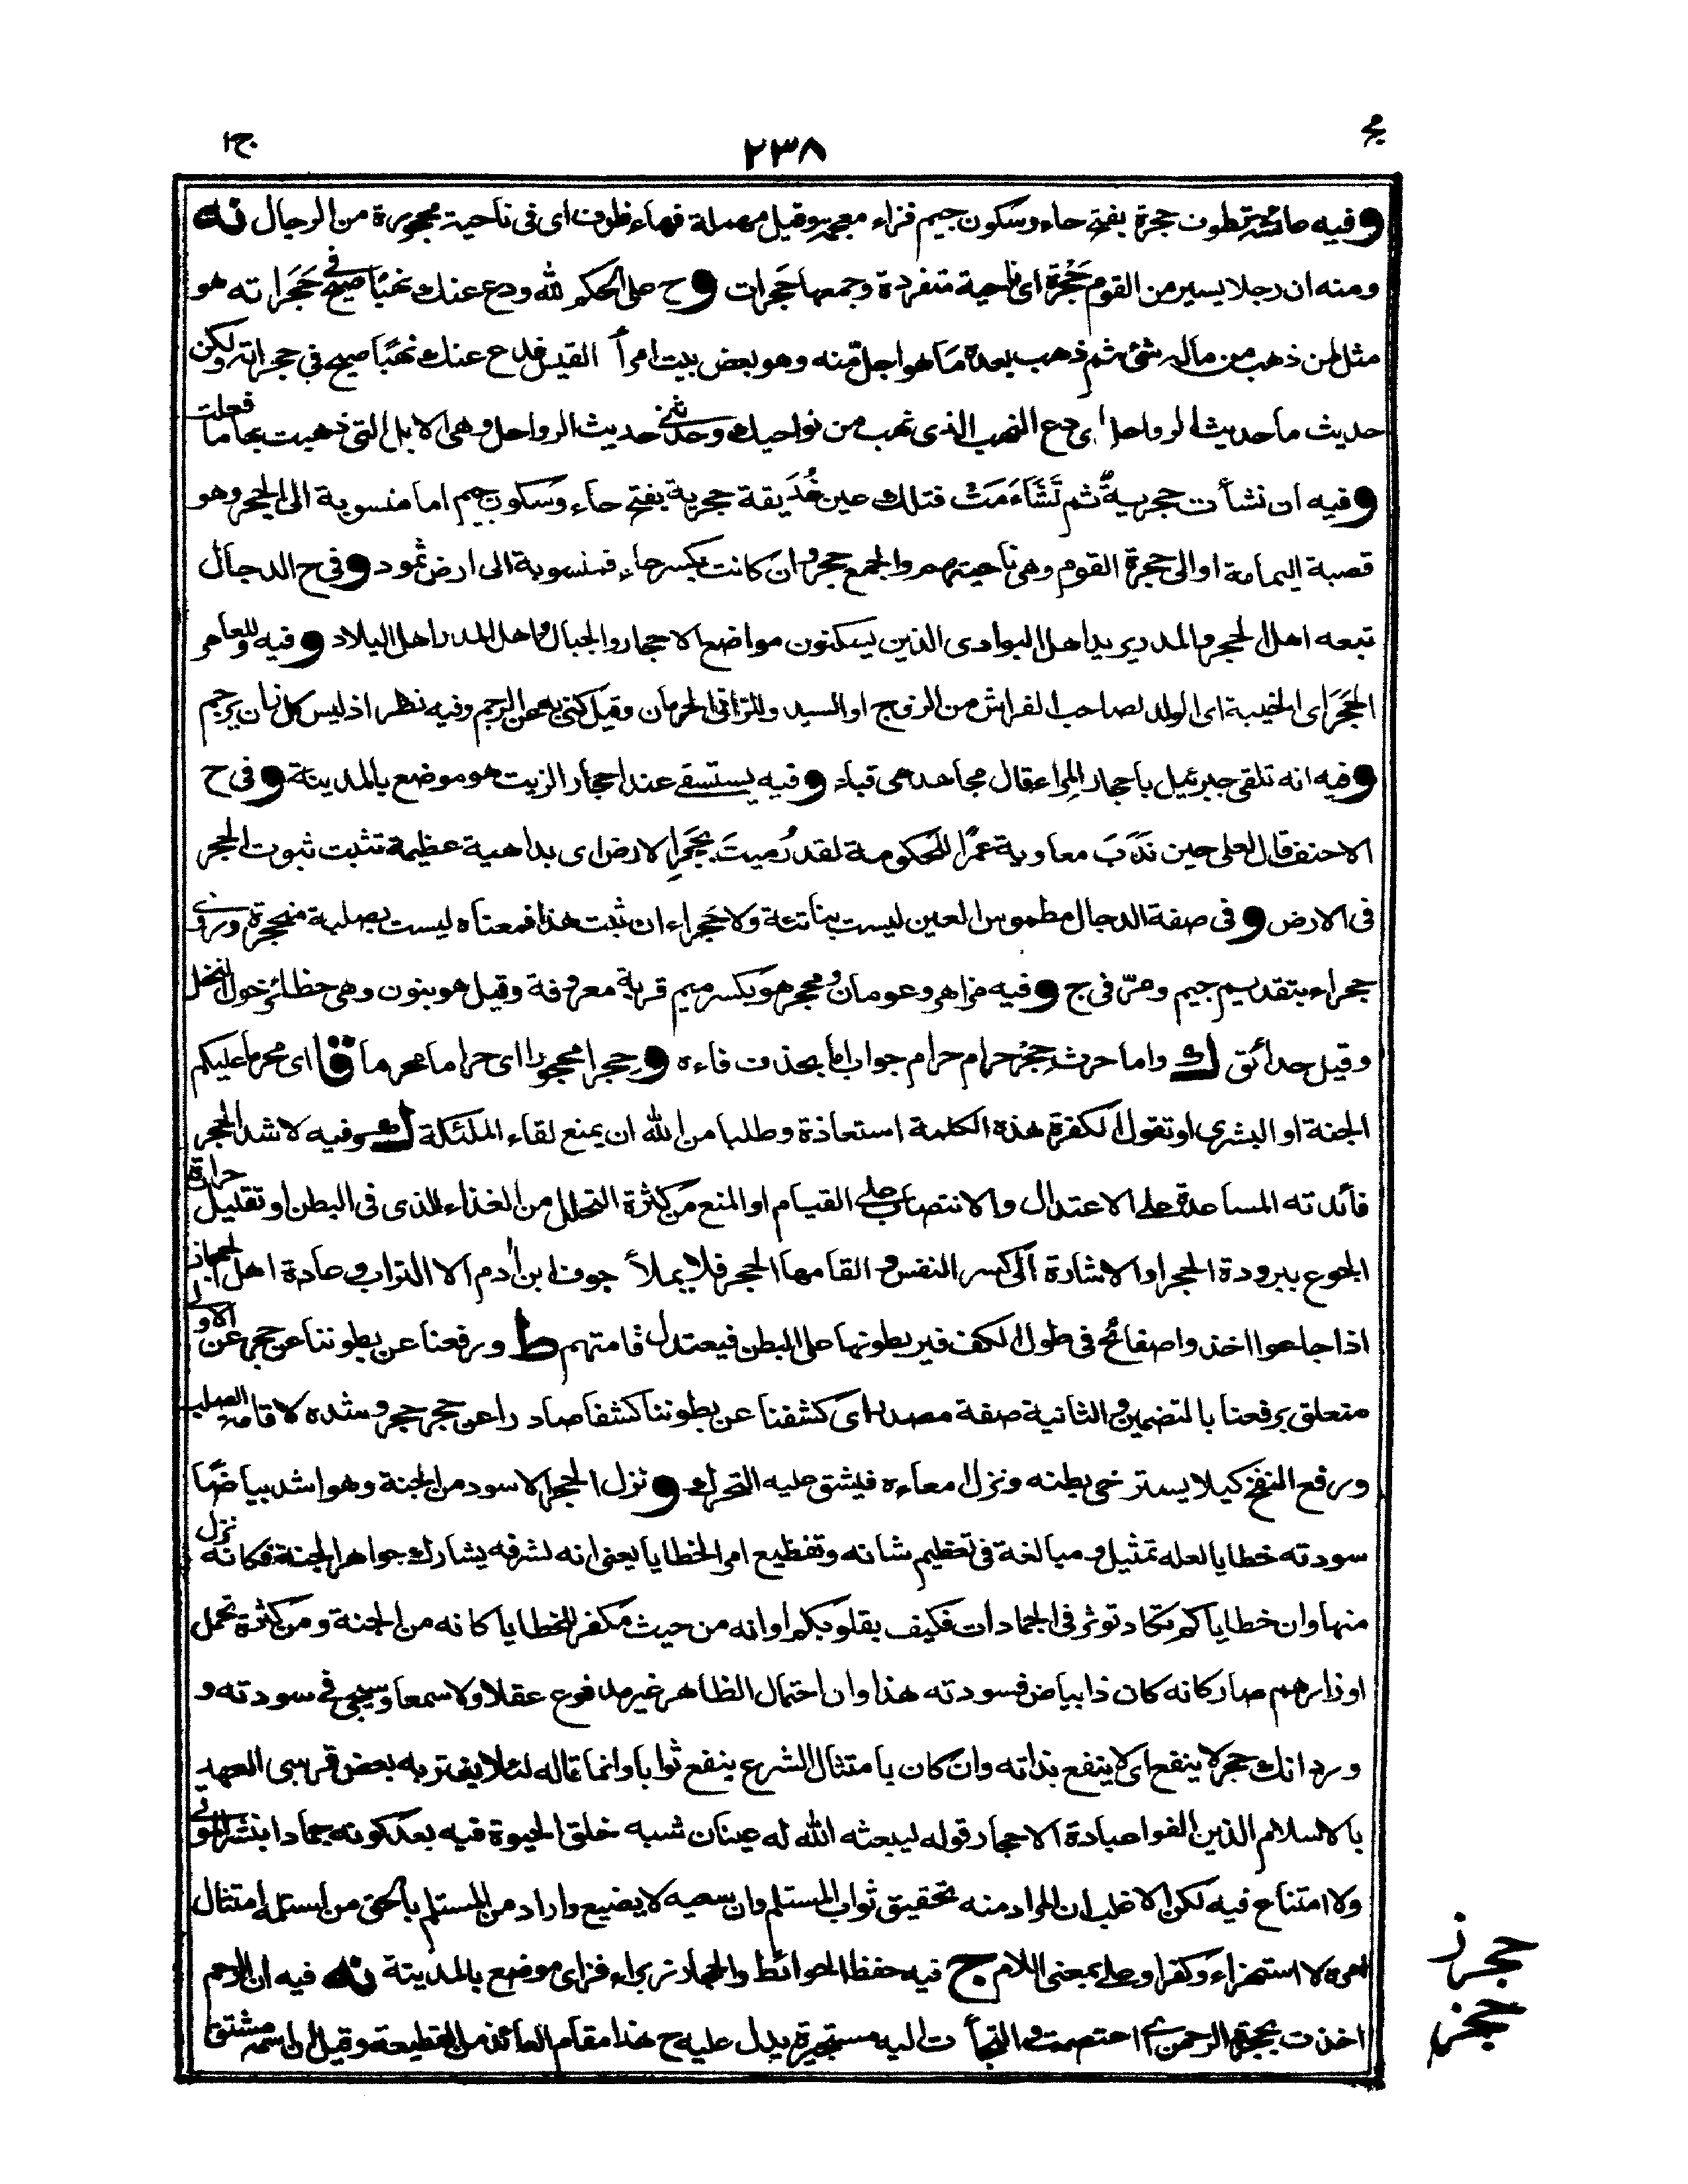 مح
٢٣٨
ج١
و فيه عائشة تطوف حجزة بفتح حاء وسكون جيم فزاء معجمة وقيل مهملة فهاء ظرف اى فى ناحية محجورة من الرجال نه
ومنه ان رجلا يسير من القوم حَجْرَة اى ناحية متفردة وجمعها حَجَرات و ح على الحكم لله ودع عنك نهبًا صيح فى حَجَراته هو
مثل لمن ذهب من ماله شئ ثم ذهب بعده ما هو اجل منه وهو بعض بيت امرأ القيس فدع عنك نهبًا صيح فى حجراته ولكن
حديث ما حديث الرواحل اى دع النهب الذى نهب من نواحيك وحدثنى حديث الرواحل وهى الابل التى ذهبت بها ما فعلت
و فيه ان نشأت حجرية ثم تَشَاءَمَتْ فتلك عين غُدَيقة حجرية بفتح حاء وسكون جيم اما منسوبة الى الحجر وهو
قصبة اليمامة او الى حجرة القوم وهى ناحيتهم والجمع حجر وان كانت بكسر حاء فمنسوبة الى ارض ثمود و فى ح الدجال
تبعه اهل الحجر والمدر يريد اهل البوادى الذين يسكنون مواضع الاحجار والجبال واهل المدر اهل البلاد و فيه وللعاهر
الحَجَر اى الخيبة اى الولد لصاحب الفراش من الزوج او السيد وللزانى الحرمان وقيل كنى به عن الرجم وفيه نظر اذ ليس كل زان يرجم
و فيه انه تلقى جبرئيل باحجار المراء قال مجاهد هى قباء و فيه يستسقى عند احجار الزيت هو موضع بالمدينة و فى ح
الاحنف قال لعلى حين نَدَبَ معاوية عمرًا للحكومة لقد رُميتَ بحَجَرِ الارض اى بداهية عظيمة تثبت ثبوت الحجر
فى الارض و فى صفة الدجال مطموس العين ليست بناتئة ولا حَجراء ان ثبت هذا فمعناه ليست بصلبة متحجرة وروى
جحراء بتقديم جيم ومرّ فى ج و فيه مزاهر وعرمان ومحجر هو بكسر ميم قرية معروفة وقيل هو بنون وهى حظائر حول النخل
وقيل حدائق ك واما حرث حِجْر حرام حرام جواب اما بحذف فاءه و حجرا محجورا اى حراما محرما قا اى محرما عليكم
الجنة او البشرى او تقول الكفرة هذه الكلمة استعاذة وطلبا من الله ان يمنع لقاء الملئكة ك وفيه لاشد الحجر
فائدته المساعدة على الاعتدال والانتصاب على القيام او المنع من كثرة التحلل من الغذاء الذى فى البطن او تقليل حرارة
الجوع ببرودة الحجر او الاشارة الى كسر النفس والقامها الحجر فلا يملأ جوف ابن أدم الا التراب وعادة اهل الحجاز
اذا جاعوا اخذوا صفائح فى طول الكف فيربطونها على البطن فيعتدل قامتهم ط ورفعنا عن بطوننا عن حجر عن الاولى
متعلق برفعنا بالتضمين والثانية صفة مصدر اى كشفنا عن بطوننا كشفا صادرا عن حجر حجر وشده لاقامة الصلب
ورفع النفخ كيلا يسترخى بطنه ونزل امعاءه فيشق عليه التحرك و نزل الحجر الاسود من الجنة وهو اشد بياضًا
سودته خطايا لعله تمثيل ومبالغة فى تعظيم شانه وتفظيع امر الخطايا يعنى انه لشرفه يشارك جواهر الجنة فكانه نزل
منها وان خطاياكم تكاد توثر فى الجمادات فكيف بقلوبكم او انه من حيث مكفر للخطايا كانه من الجنة ومن كثرة تحمل
اوزارهم صار كانه كان ذا بياض فسودته هذا وان احتمال الظاهر غير مدفوع عقلا ولا سمعا وسيجئ فى سودته و
ورد انك حجر لا ينفع اى لا ينفع بذاته وان كان بامتثال الشرع ينفع ثوابا وانما قاله لئلا يغتر به بعض قريبى العهد
بالاسلام الذين الفوا عبادة الاحجار وقوله ليبعثه الله له عينان شبه خلق الحيوة فيه بعد كونه جمادا بنشر الموتى
ولا امتناع فيه لكن الاغلب ان المراد منه تحقيق ثواب المستلم وان سعيه لا يضيع واراد من المستلم بالحق من استلمه امتثال
امره لا استهزاء وكفرا وعلى بمعنى اللام ج فيه حفظ الحوائط والحجاز براء فزاى موضع بالمدينة نه فيه ان الرحم
اخذت بحجزة الرحمن اى اعتصمت والتجأت اليه مستجيرة يدل عليه ح هذا مقام العائذ من القطيعة وقيل ان اسمه مشتق
حجرز
حجز